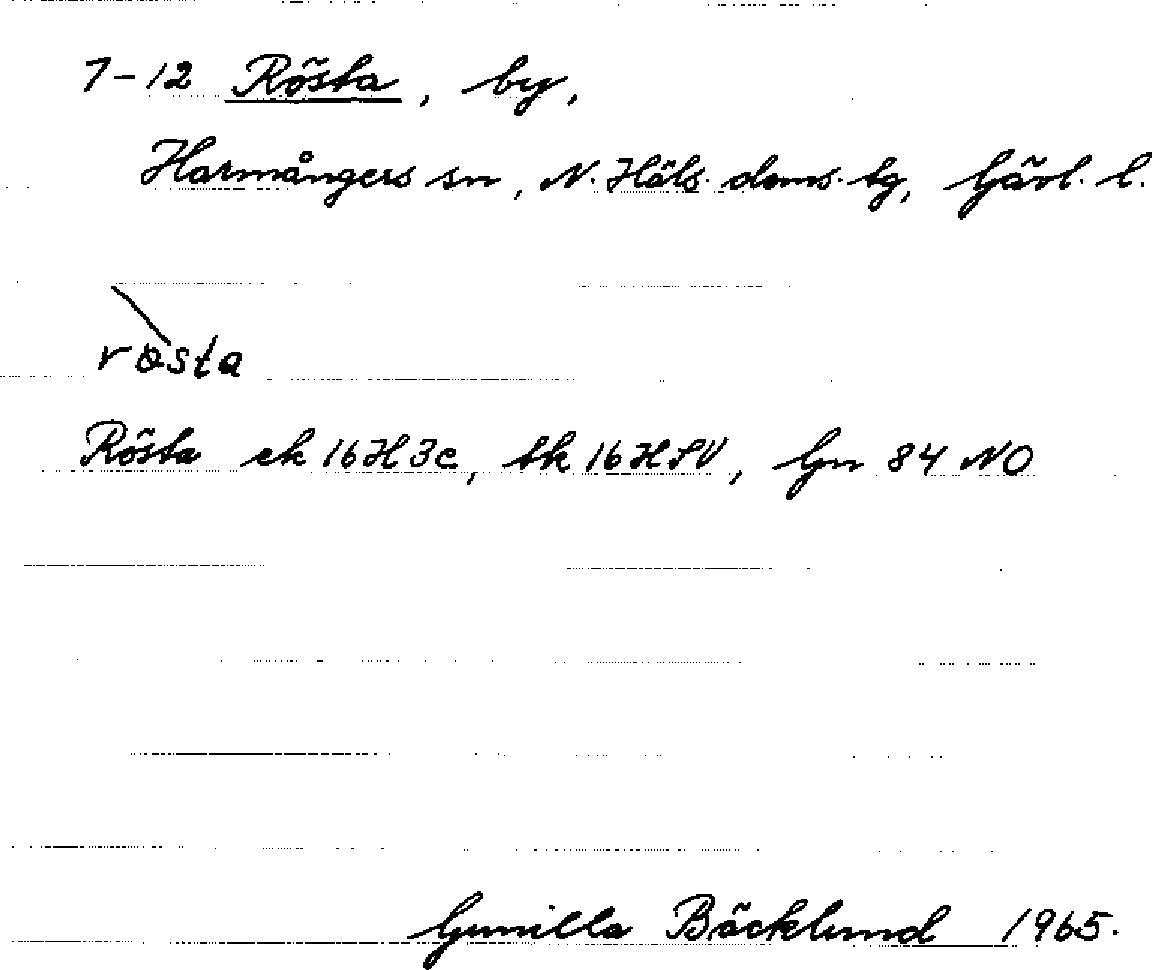 7-12 Rösta, by,
Harmångers sn, N. Häls. doms. tg, Gävl. l.
rösta
Rösta ek 16H3c, tk 16HSV, Gn 84 NO
Gunilla Bäcklund 1965.